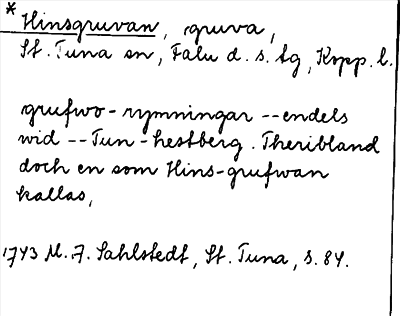 * Hinsgruvan, gruva,
St. Tuna sn, Falu d. s. tg, Kopp. l.
grufwo-rymningar -- endels
wid -- Tun-hestberg. Theribland
doch en som Hins-grufwan
kallas,
1743 M. A. Sahlstedt, St. Tuna, s. 84.